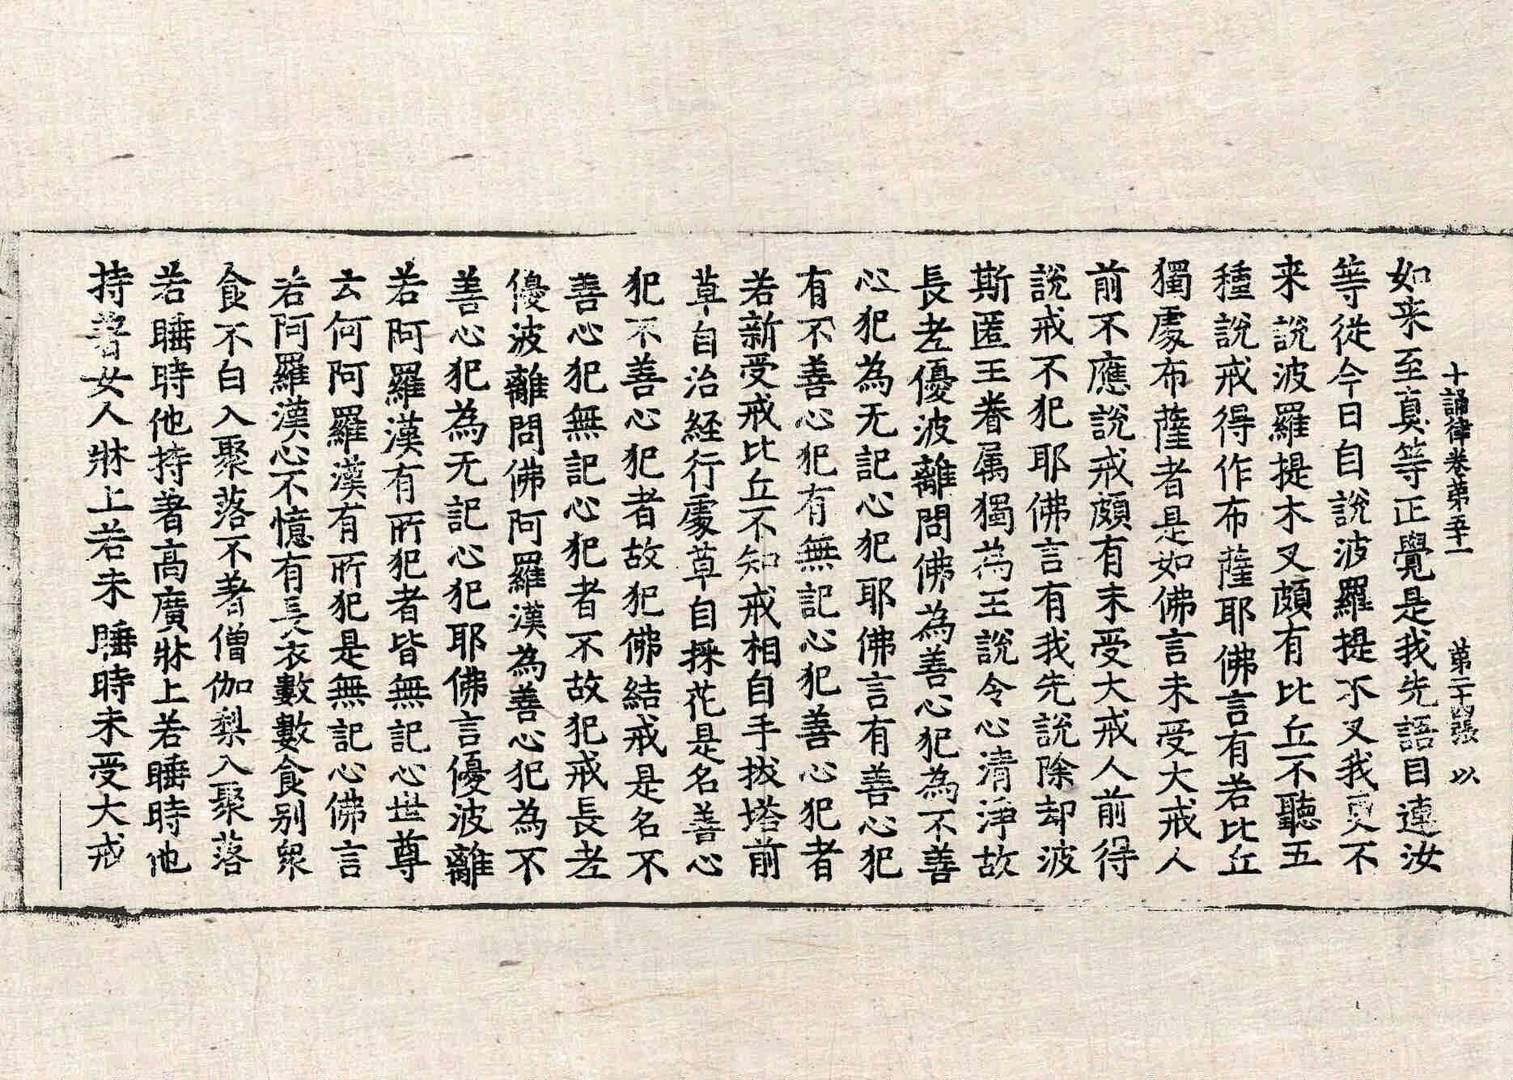 十誦律卷第五十一 第二十四張 以
如来至真等正覺是我先語目連汝
等從今日自說波羅提木叉我更不
来說波羅提木叉頗有比丘不聽五
種說戒得作布薩耶佛言有若比丘
獨處布薩者是如佛言未受大戒人
前不應說戒頗有未受大戒人前得
說戒不犯耶佛言有我先說除却波
斯匿王眷属獨為王說令心清淨故
長老優波離問佛為善心犯為不善
心犯為无記心犯耶佛言有善心犯
有不善心犯有無記心犯善心犯者
若新受戒比丘不知戒相自手拔塔前
草自治経行處草自採花是名善心
犯不善心犯者故犯佛結戒是名不
善心犯無記心犯者不故犯戒長老
優波離問佛阿羅漢為善心犯為不
善心犯為无記心犯耶佛言優波離
若阿羅漢有所犯者皆無記心世尊
云何阿羅漢有所犯是無記心佛言
若阿羅漢心不憶有長衣數數食别衆
食不白入聚落不著僧伽梨入聚落
若睡時他持著高廣牀上若睡時他
持著女人牀上若未睡時未受大戒